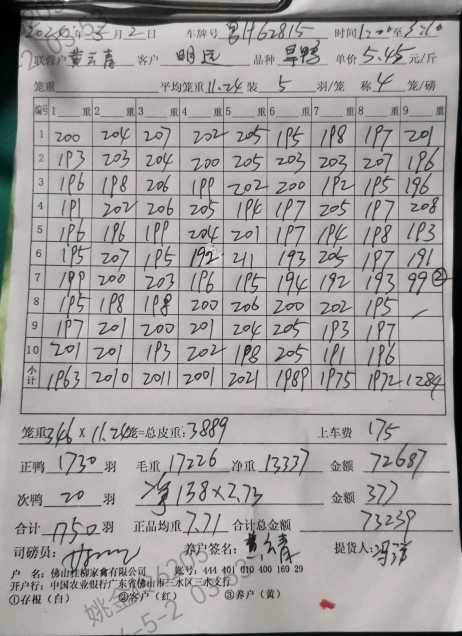 2024年5月2日 车牌号 粤H62815 时间1:00至3:10
联营户 黄云青 客户 明远 品种 旱鸭 单价 5.45元/斤
笼重 平均笼重11.24 装 5 羽/笼 称 4 笼/磅
编号 1 重 2 重 3 重 4 重 5 重 6 重 7 重 8 重 9 重
1 200 204 207 202 205 195 198 197 201
2 193 203 204 200 205 203 203 207 196
3 196 198 206 199 202 200 192 195 196
4 191 202 206 205 194 197 205 197 208
5 196 196 199 204 201 197 194 198 193
6 195 207 195 192 211 193 205 197 191
7 199 200 203 196 195 194 192 193 99 ②
8 195 198 198 200 206 200 202 195
9 197 201 200 201 204 205 193 197
10 201 201 193 202 198 205 191 196
小计 1963 2010 2011 2001 2021 1989 1975 1972 1284
笼重346×11.24笼=总皮重:3889 上车费 175
正鸭 1730 羽 毛重 17226 净重 13337 金额 72687
次鸭 20 羽 净138×2.73 金额 377
合计 1750 羽 正品均重 7.71 合计总金额 73239
司磅员: 养户签名: 黄云青 提货人:
户 名: 佛山桂柳家禽有限公司 账号: 444 401 010 400 169 29
开户行: 中国农业银行广东省佛山市三水区三水支行
①存根(白) ②客户(红) ③养户(黄)